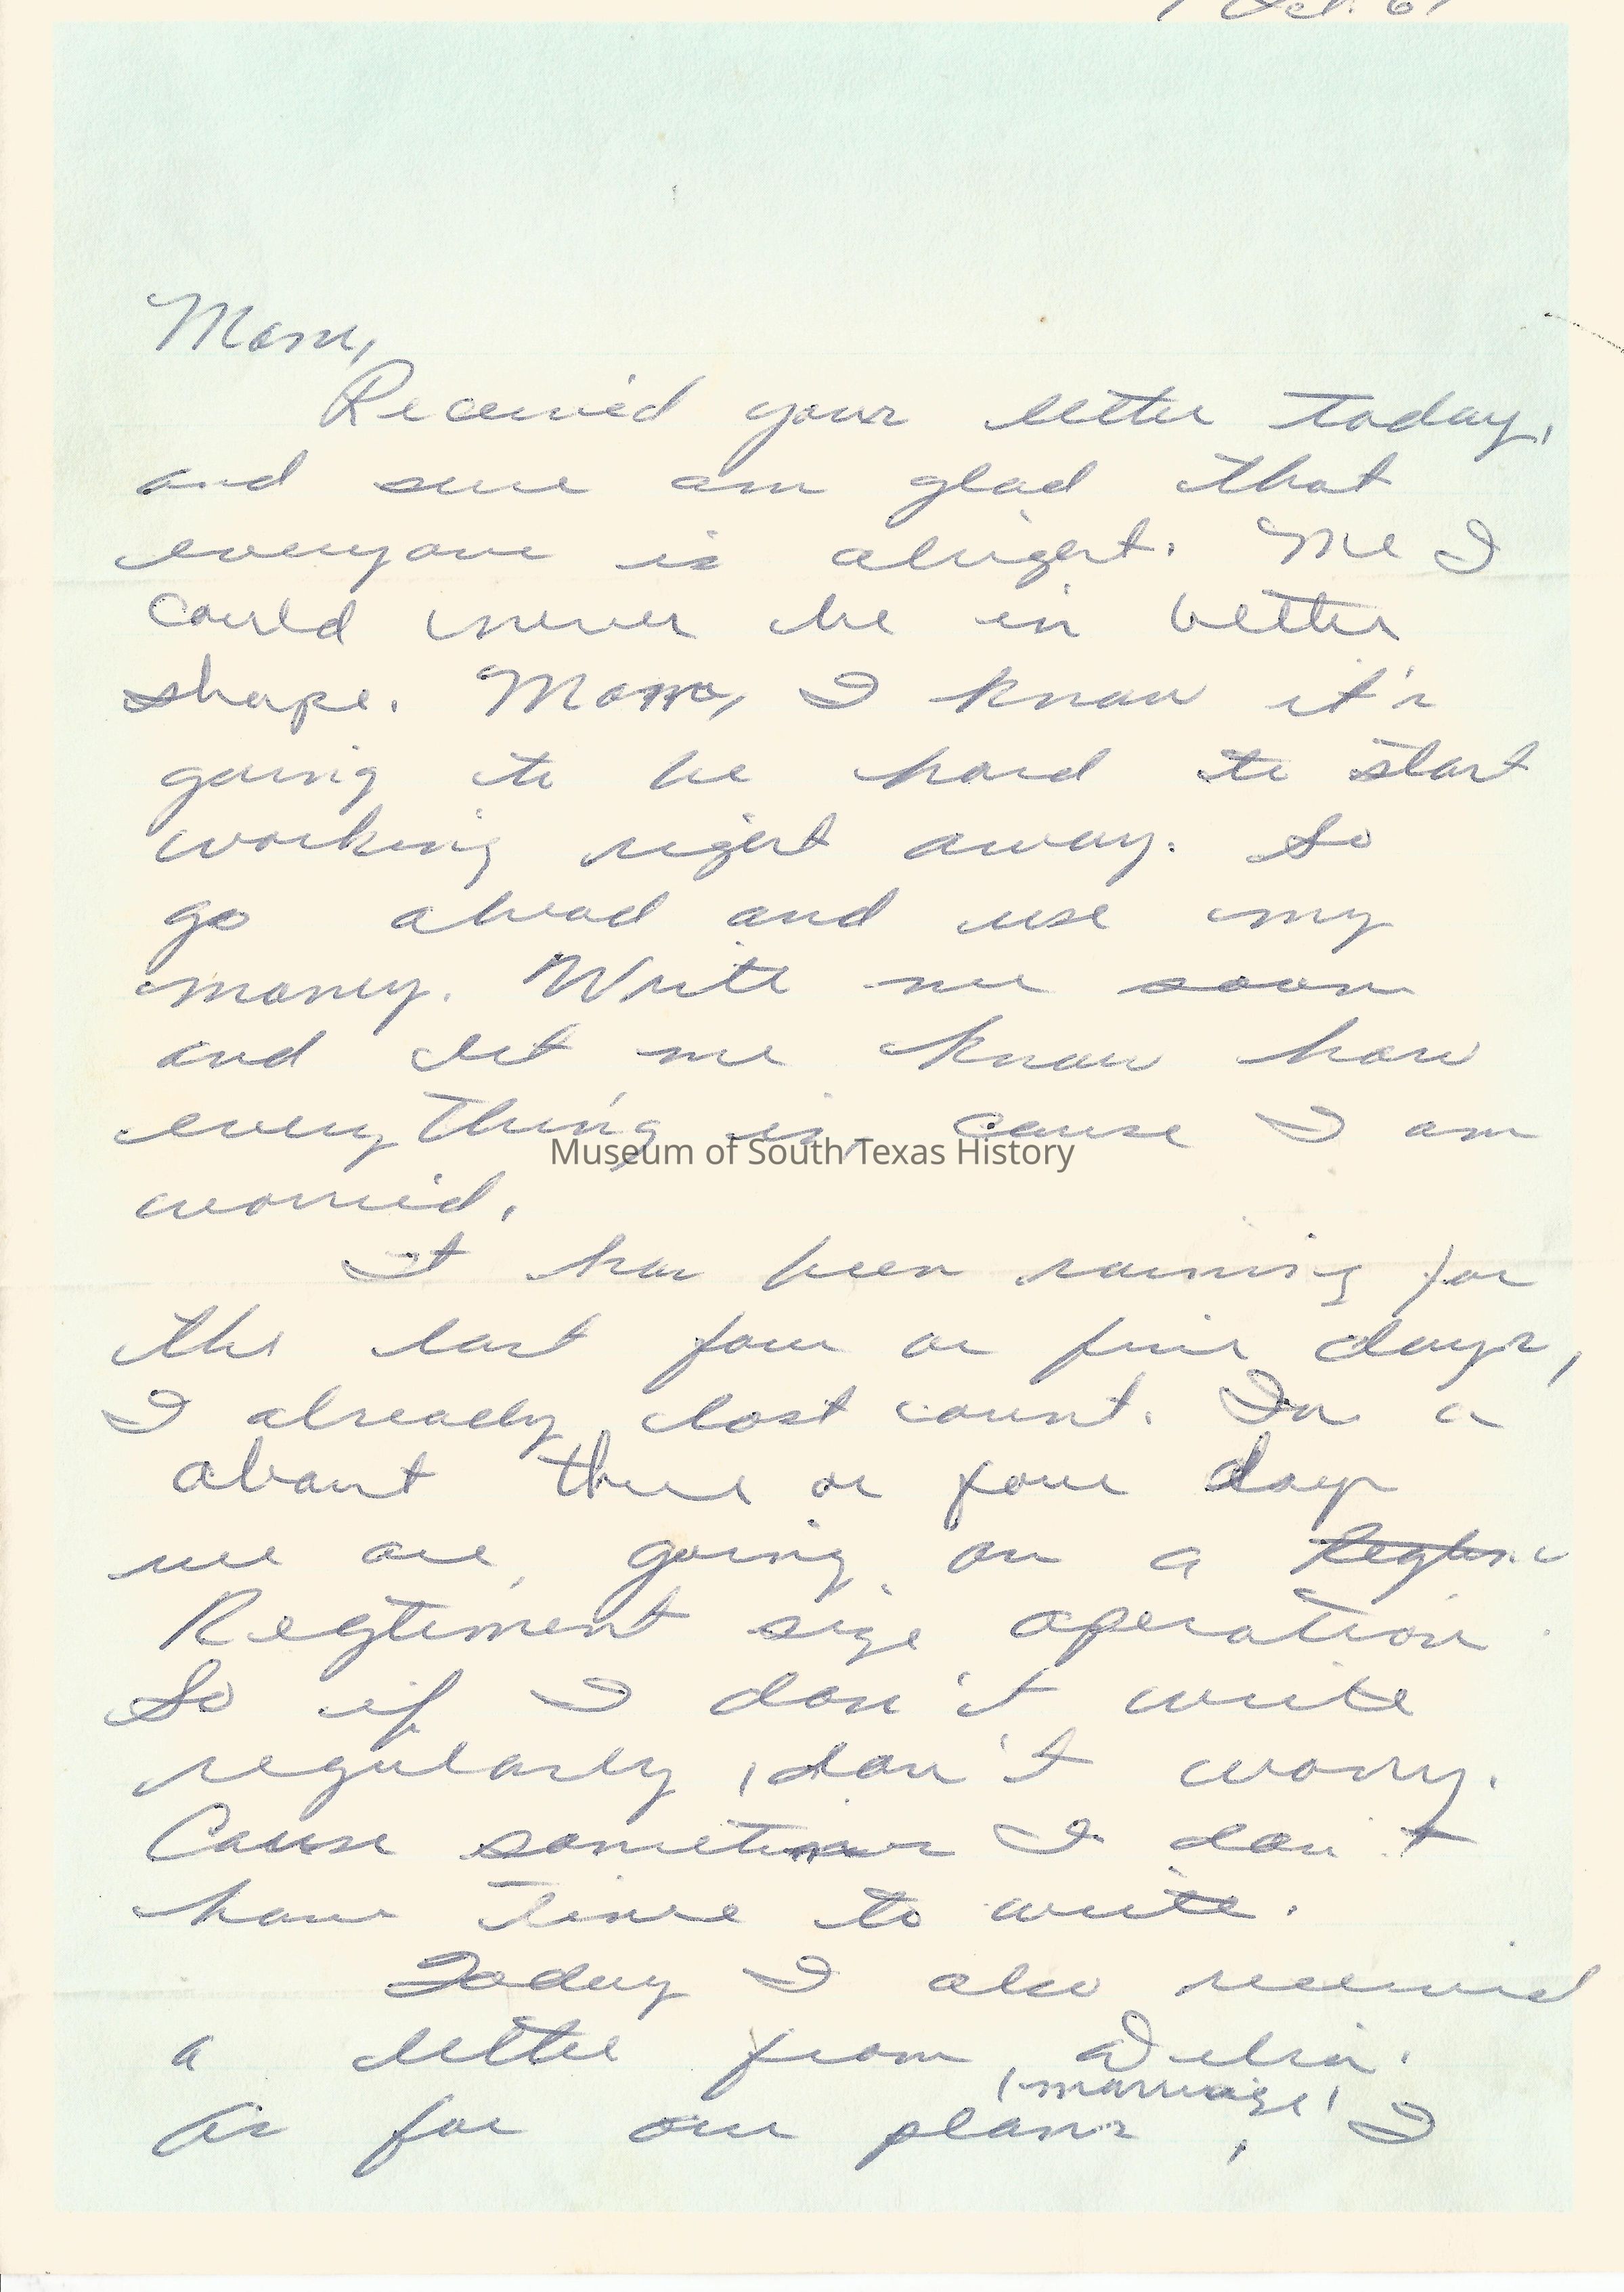 Oct. 6
Mom,
Received your letter today,
and sure am glad that
everyone is alright. Me I
could never be in better
shape. Mom, I know it's
going to be hard to start
working right away. So
go ahead and use my
money. Write me soon
and let me know how
everything is, cause I am
worried.
Museum of South Texas History
It has been raining for
the last four or five days,
I already lost count. In a
about three or four days
we are going on a
Regtiment size operation
So if I don't write
regularly, don't worry.
Cause sometimes I don't
have time to write.
Today I also received
a letter from Delia.
(marriage)
As for our plans, I